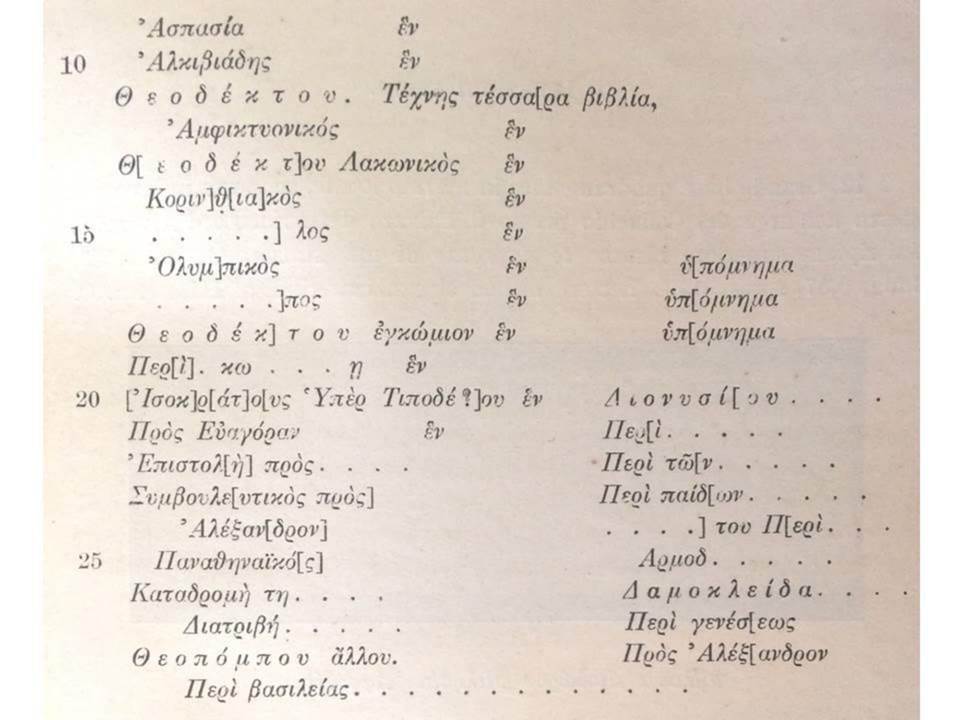 Ἀσπασία ἓν
10 Ἀλκιβιάδης ἓν
Θεοδέκτου. Τέχνης τέσσα[ρα βιβλία,
Ἀμφικτυονικός ἓν
Θ[εοδέκτ]ου Λακωνικὸς ἓν
Κοριν]θ̣[ια]κὸς ἓν
15 . . . . .] λος ἓν
Ὀλυμ]πικὸς ἓν ὑ[πόμνημα
. . . . .]πος ἓν ὑπ[όμνημα
Θεοδέκ]του ἐγκώμιον ἓν ὑπ[όμνημα
Περ[ὶ]. κω . . . η ἓν
20 [Ἰσοκ]ρ[άτ]ο[υς Ὑπὲρ Τιποδέ?]ου ἑν Διονυσί[ου . . . .
Πρὸς Εὐαγόραν ἓν Περ[ὶ . . . . .
Ἐπιστολ[ὴ] πρὸς . . . . Περὶ τῶ[ν . . . . .
Συμβουλε[υτικὸς πρὸς] Περὶ παίδ[ων . . . . .
Ἀλέξαν[δρον] . . . .] του Π[ερὶ . . .
25 Παναθηναϊκό[ς] Αρμοδ. . . . .
Καταδρομὴ τη. . . . Δαμοκλείδα. . . .
Διατριβή. . . . . Περὶ γενέσ[εως
Θεοπόμπου ἄλλου. Πρὸς Ἀλέξ[ανδρον
Περὶ βασιλείας. . . . . . . . . . . . . .